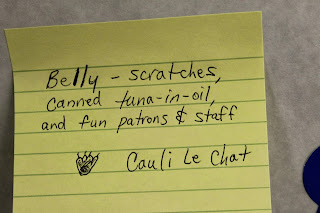 Belly - scratches,
canned tuna-in-oil,
and fun patrons & staff
Cauli Le Chat